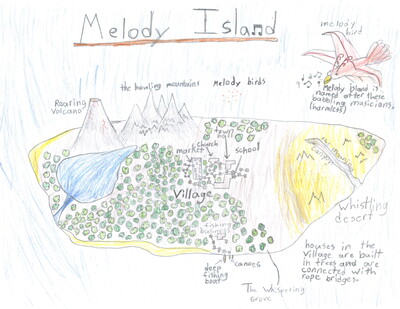 Melody Island
melody
bird
Melody Island is
named after these
babbling musicians.
(harmless)
the howling mountains
Melody birds
Roaring
Volcano
town
hall
church
market
school
Village
whistling
desert
fishing
deep
fishing
boat
canoes
The whispering
Grove
houses in the
village are built
in trees and are
connected with
rope bridges.